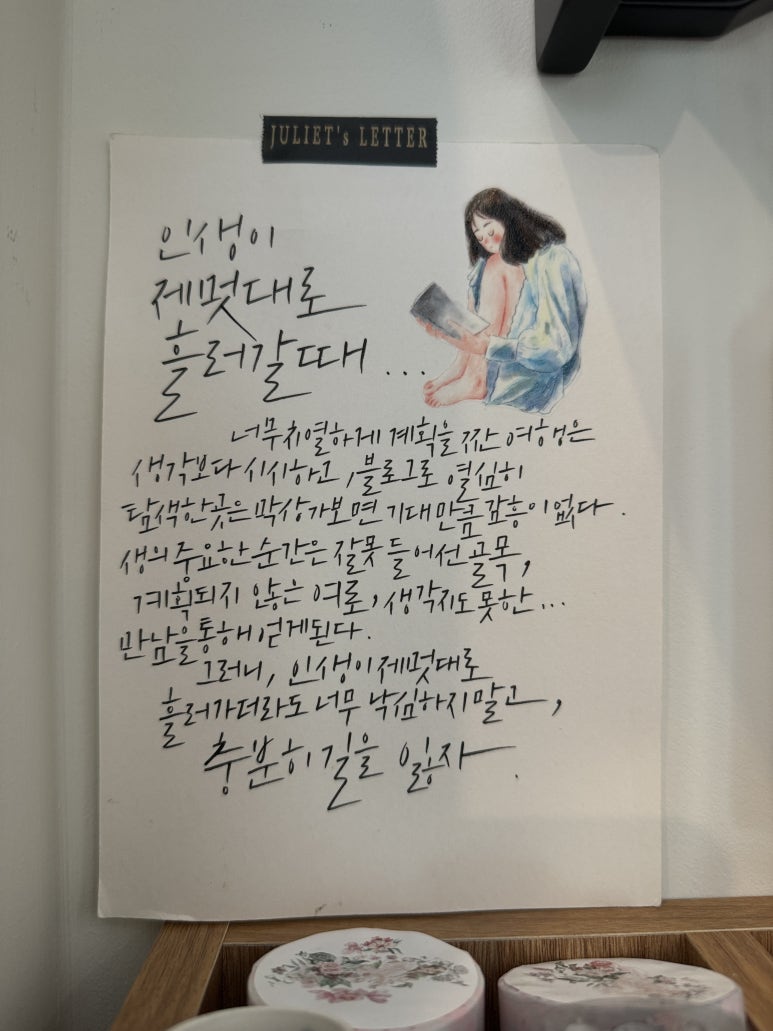 JULIET's LETTER
인생이
제멋대로
흘러갈때...
너무 치열하게 계획을 짠 여행은
생각보다 시시하고, 블로그로 열심히
탐색한 곳은 막상 가보면 기대만큼 감흥이 없다.
생의 중요한 순간은 잘못 들어선 골목,
계획되지 않는 여로, 생각지도 못한...
만남을 통해 얻게된다.
그러니, 인생이 제멋대로
흘러가더라도 너무 낙심하지 말고,
충분히 길을 잃자.